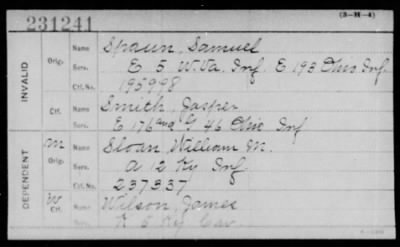 231241
(3-M-4)
INVALID
Orig. Name Spaun, Samuel
Serv. E 5 W.Va. Inf. E 193 Ohio Inf.
Ctf. No. 195998
Ctf. Name Smith, Jasper
Serv. E 176 and G 46 Ohio Inf
DEPENDENT
M Orig. Name Sloan, William M.
Serv. A 12 Ky Inf
Ctf. No. 237337
W Ctf. Name Wilson, James
Serv. K 6 Ky Cav